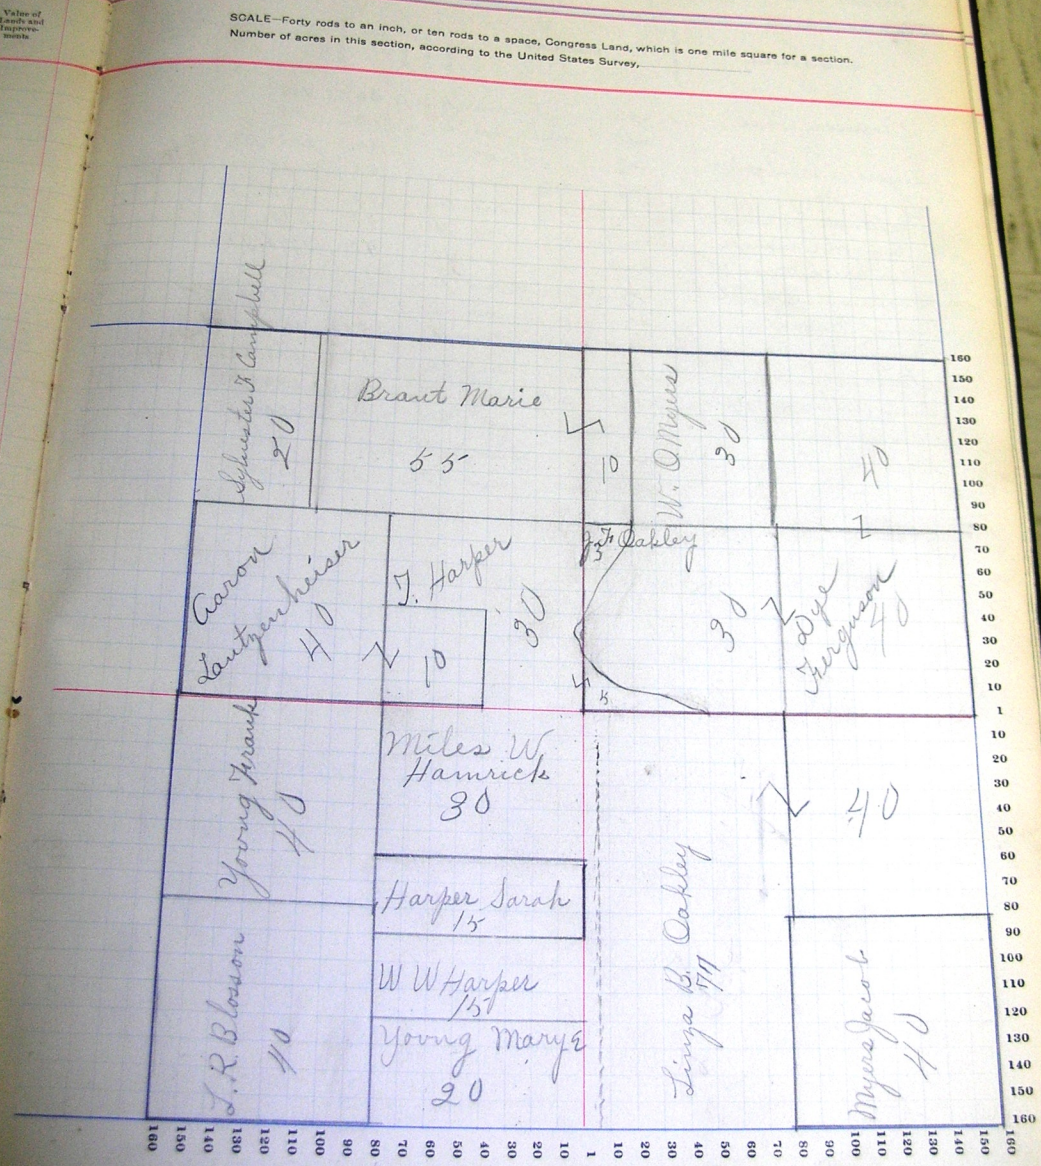 Value of
Lands and
Improve-
ments.
SCALE—Forty rods to an inch, or ten rods to a space, Congress Land, which is one mile square for a section.
Number of acres in this section, according to the United States Survey,
Sylvester F Campbell
20
Brant Marie
55
10
W. O. Myres
30
40
Aaron
Lautzenheiser
40
T. Harper
30
10
J. F. Oakley
5
30
5
Dye
Ferguson
40
Young Frank
40
Miles W.
Hamrick
30
40
Harper Sarah
15
W W Harper
15
Young Mary E
20
L. R. Blosson
40
Linza B. Oakley
Myers Jacob
40
160
150
140
130
120
110
100
90
80
70
60
50
40
30
20
10
1
10
20
30
40
50
60
70
80
90
100
110
120
130
140
150
160
160 150 140 130 120 110 100 90 80 70 60 50 40 30 20 10 1 10 20 30 40 50 60 70 80 90 100 110 120 130 140 150 160 160